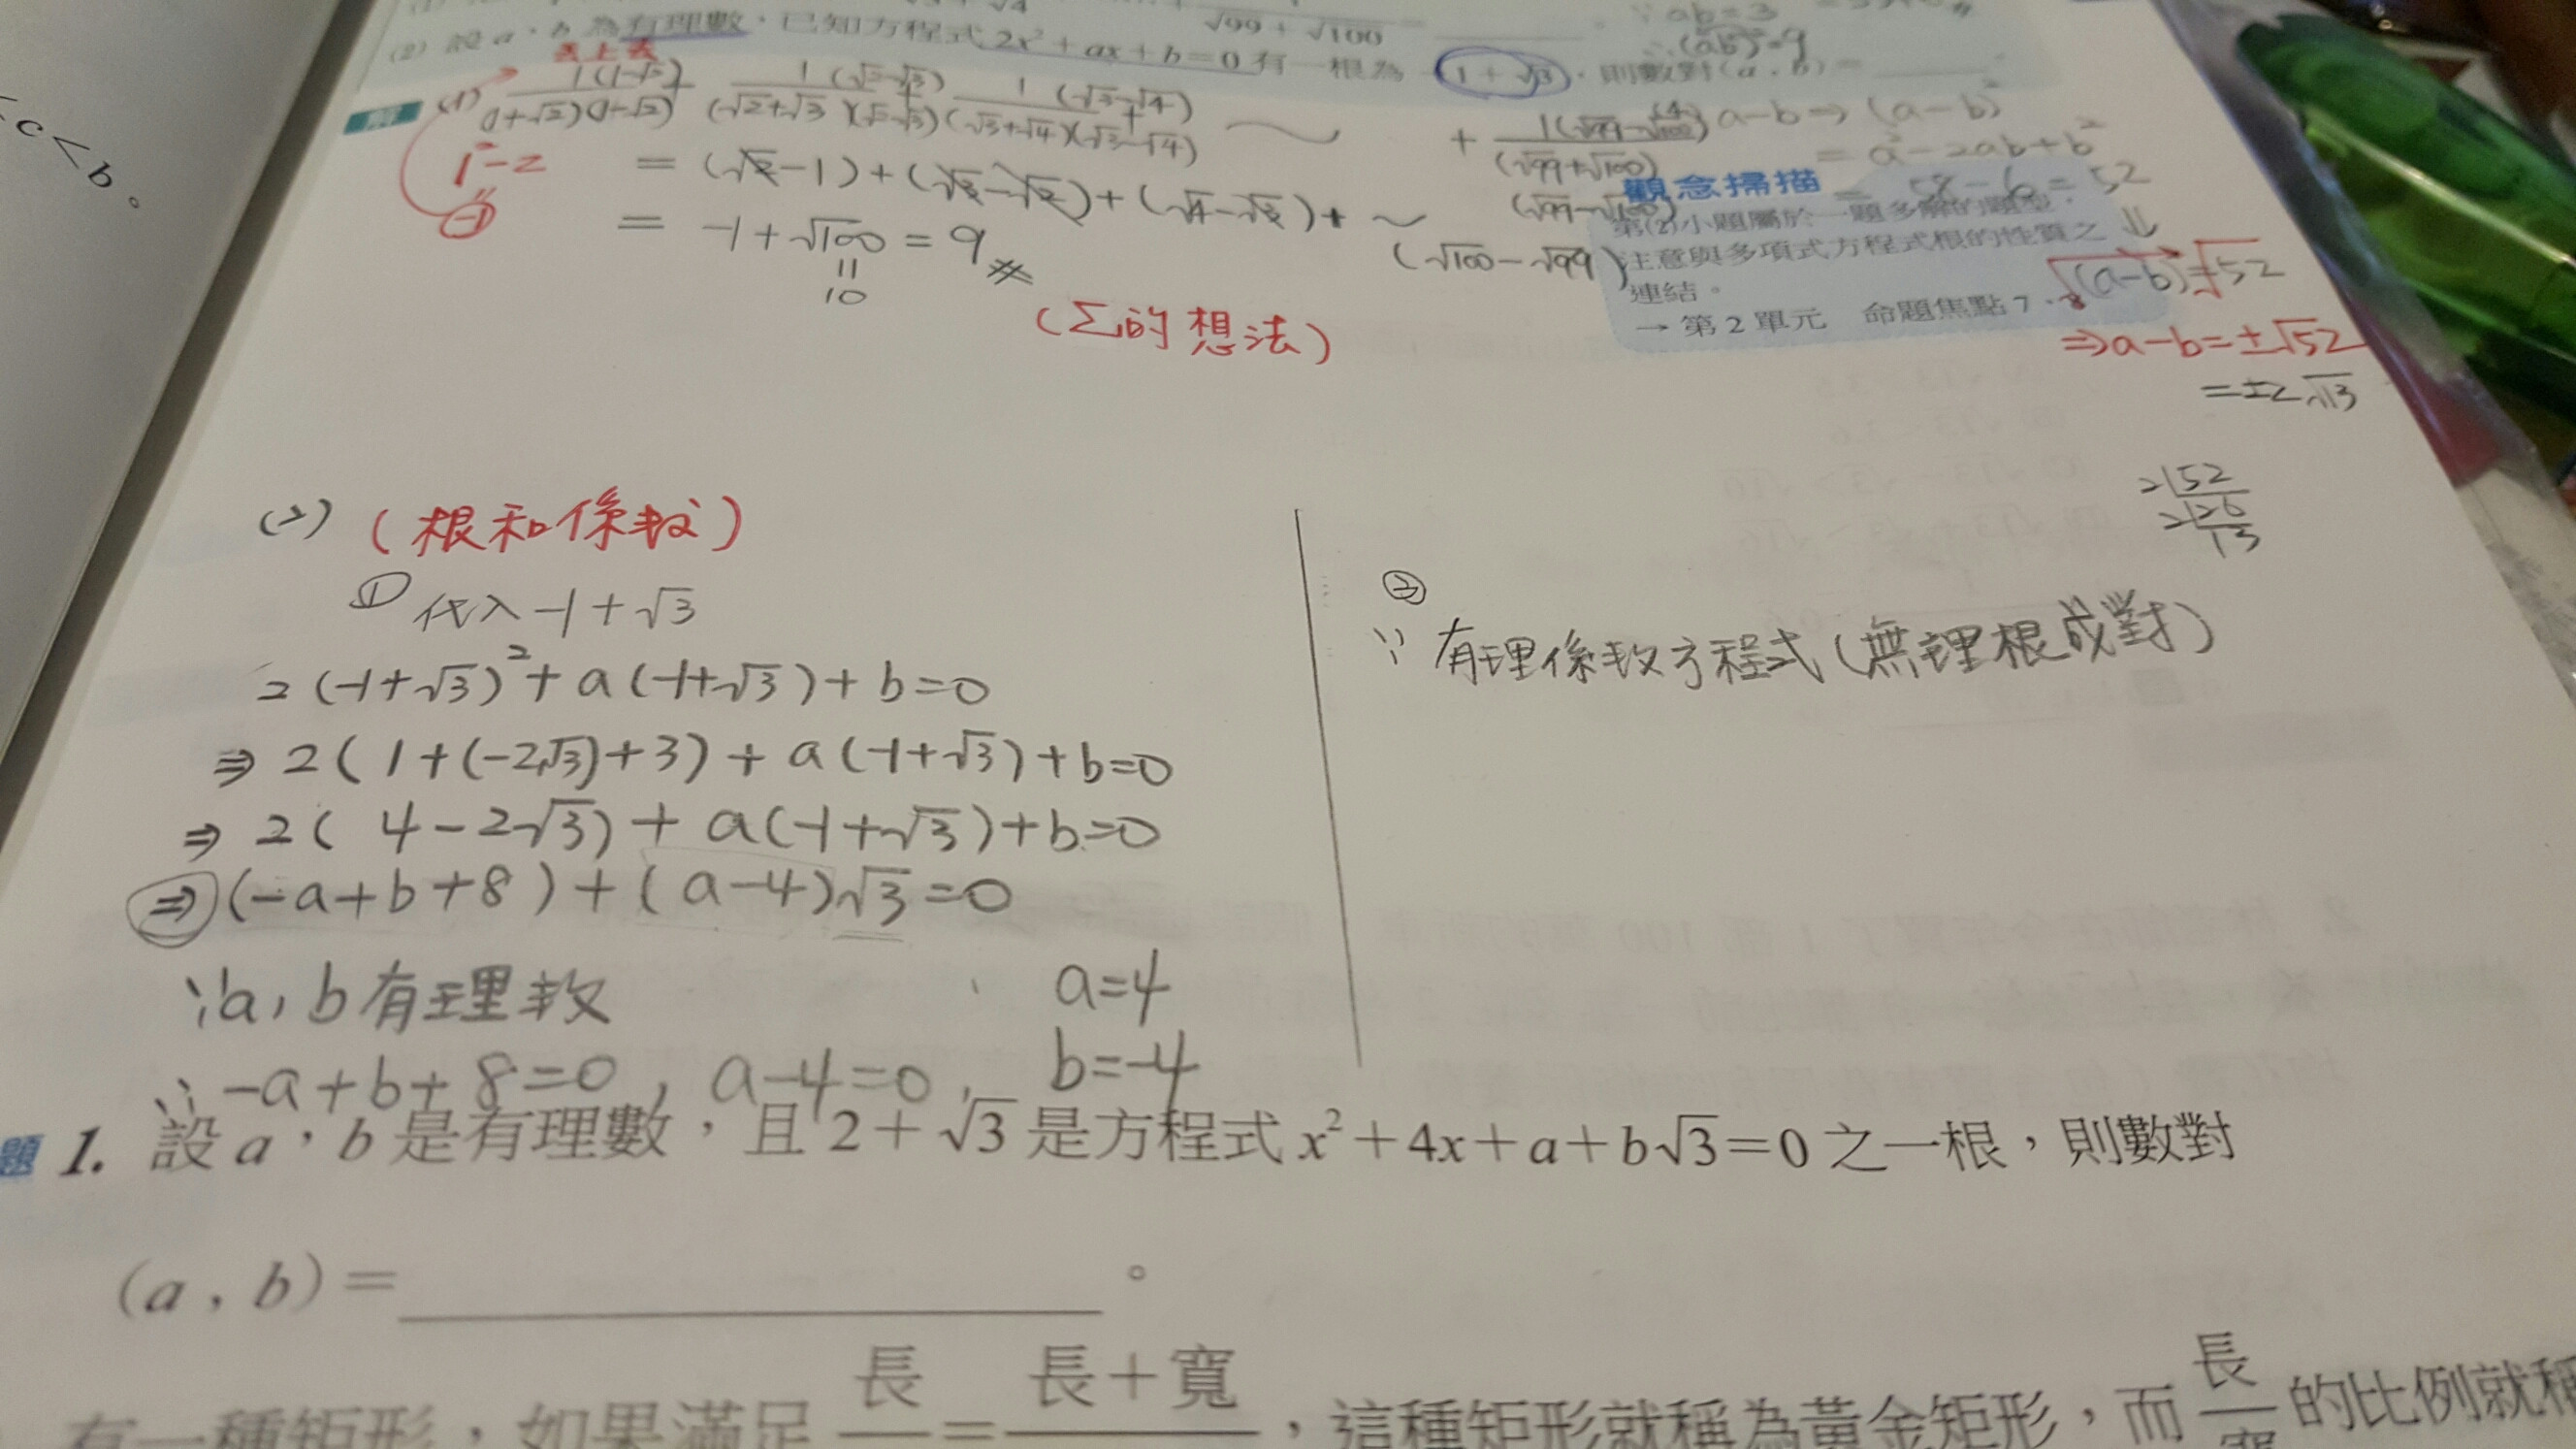 <c<b。
√99+√100
ab=3
(2) 設a、b為有理數,已知方程式2x²+ax+b=0有一根為-1+√3,則數對(a,b)=
(ab)²=9
去上去
解 (1) 1(1-√2)/(1+√2)(1-√2) + 1(√2-√3)/(√2+√3)(√2-√3) + 1(√3-√4)/(√3+√4)(√3-√4) ～ + 1(√99-√100)/(√99+√100)(√99-√100)
1²-2
-1
=(√2-1)+(√3-√2)+(√4-√3)+～(√100-√99)
=-1+√100=9
10
(Σ的想法)
(4) a-b⇒(a-b)²
=a²-2ab+b²
=58-6=52
觀念掃描
第(2)小題屬於一題多解的題型,
注意與多項式方程式根的性質之
連結。
→第2單元 命題焦點7、8
√(a-b)²=√52
⇒a-b=±√52
=±2√13
2|52
2|26
13
(2) (根和係數)
① 代入-1+√3
2(-1+√3)²+a(-1+√3)+b=0
⇒2(1+(-2√3)+3)+a(-1+√3)+b=0
⇒2(4-2√3)+a(-1+√3)+b=0
⇒(-a+b+8)+(a-4)√3=0
∵a,b有理數 a=4
∴-a+b+8=0, a-4=0, b=-4
②
∵有理係數方程式(無理根成對)
題 1. 設a,b是有理數,且2+√3是方程式x²+4x+a+b√3=0之一根,則數對
(a,b)= 。
有一種矩形,如果滿足長/=長+寬/,這種矩形就稱為黃金矩形,而長/寬的比例就稱